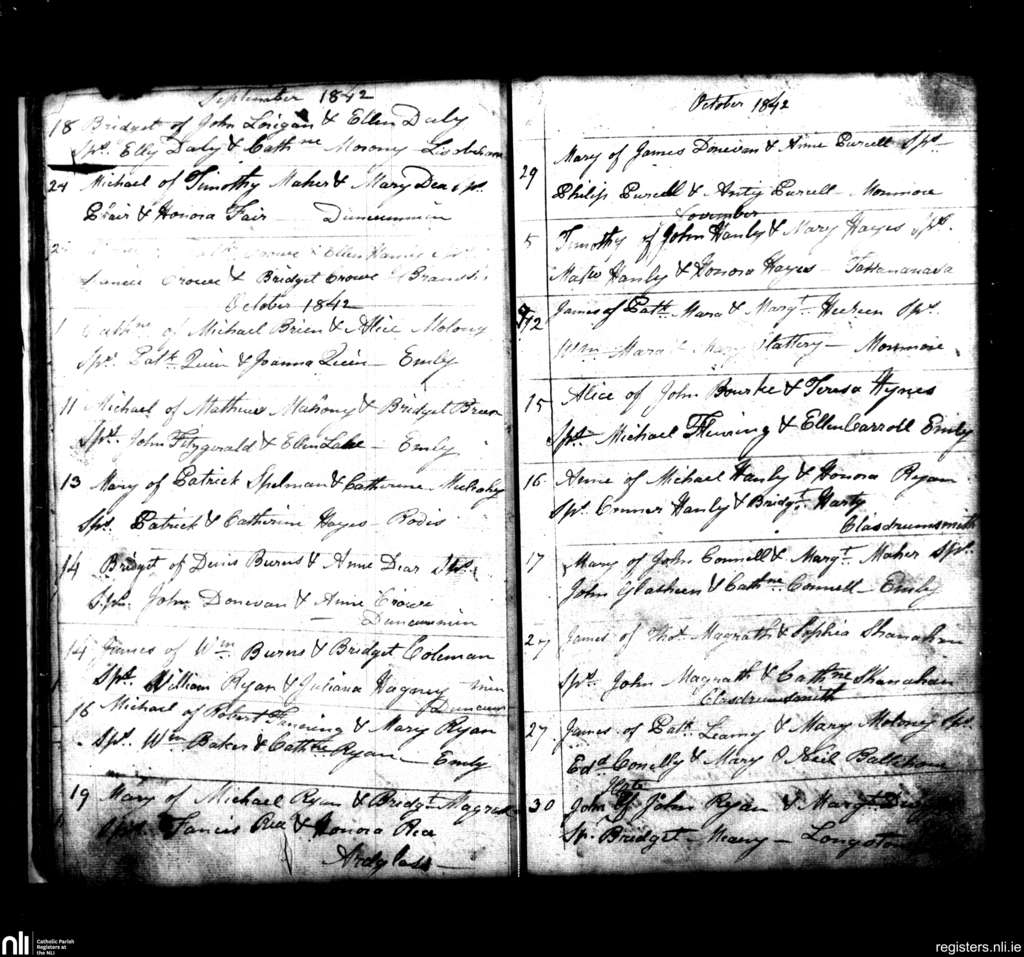 September 1842
18 Bridget of John Lorigan & Ellen Daly
Sps. Elly Daly & Cathne Morony
24 Michael of Timothy Maher & Mary Dea sps.
& Honora Fair Duncummin
2 Crowe & Ellen
Crowe & Bridget Crowe
October 1842
1 Cathne of Michael Brien & Alice Molony
Sps. Patk Quin & Joanna Quin — Emly
11 Michael of Mathew Mahony & Bridget Brien
Sps. John Fitzgerald & Ellen Lake — Emly
13 Mary of Patrick Spelman & Catherine Mulcahy
Sps. Patrick & Catherine Hayes — Rodis
14 Bridget of Denis Burns & Anne Dear Sps.
Sps. John Donevan & Anne Crowe
Duncummin
14 James of Wm Burns & Bridget Coleman
Sps. William Ryan & Juliana Hagney
Duncummin
16 Michael of Robert Fanning & Mary Ryan
Sps. Wm Baker & Cathne Ryan — Emly
19 Mary of Michael Ryan & Bridgt Magrath
Sps. Francis Rea & Honora Rea
Ardglass —
October 1842
29 Mary of James Donevan & Anne Purcell Sps —
Philip Purcell & Anty Purcell — Monmore
November
5 Timothy of John Hanly & Mary Hayes Sps.
Matw Hanly & Honora Hayes —
12 James of Patk Mara & Margt Sps.
Wm Mara & Mary Slattery — Monmore
15 Alice of John Bourke & Teresa Hynes
Sps. Michael Fleming & Ellen Carroll Emly
16 Anne of Michael Hanly & Honora Ryan
Sps. Connor Hanly & Bridgt Harty
Glasdrumsmith
17 Mary of John Connell & Margt Maher Sps.
John Glasheen & Cathne Connell — Emly
27 James of Thos Magrath & Sophia Shanahan
Sps. John Magrath & Cathne Shanahan
Glasdrumsmith
27 James of Patk Leamy & Mary Moloney Sps.
Edd Conelly & Mary O Neil
30 John of John Ryan & Margt
Sp. Bridget Meany — Longstone
nli
Catholic Parish
Registers at
the NLI
registers.nli.ie